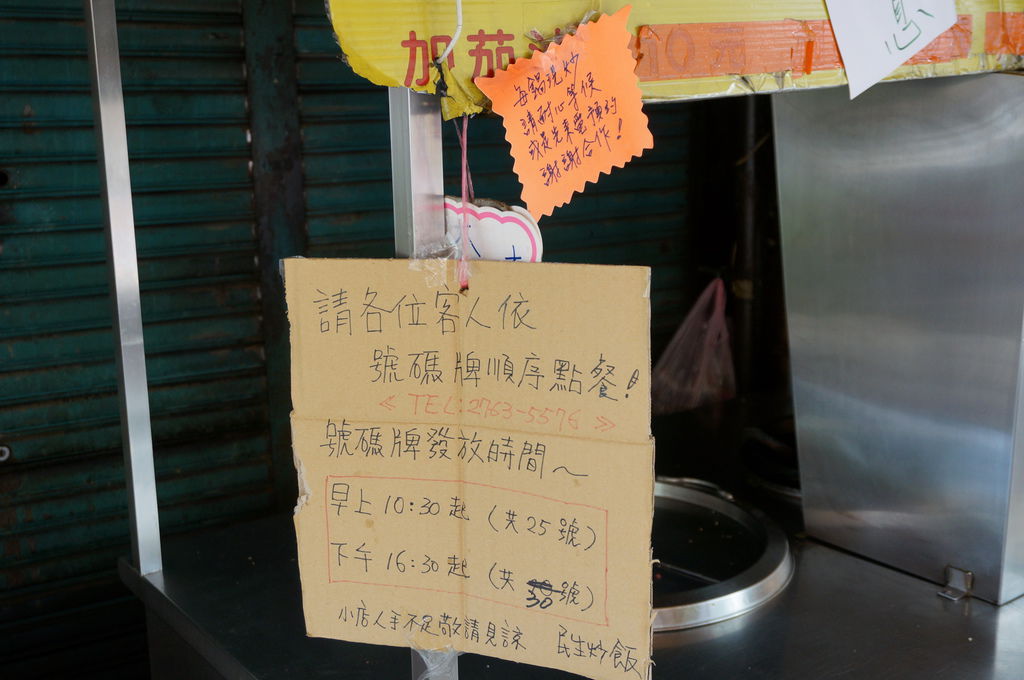 加茄
10元
每鍋現炒
請耐心等候
或是先來電預約
謝謝合作!
請各位客人依
號碼牌順序點餐!
《TEL:2763-5576》
號碼牌發放時間~
早上 10:30 起 (共 25 號)
下午 16:30 起 (共 30 號)
小店人手不足敬請見諒 民生炒飯